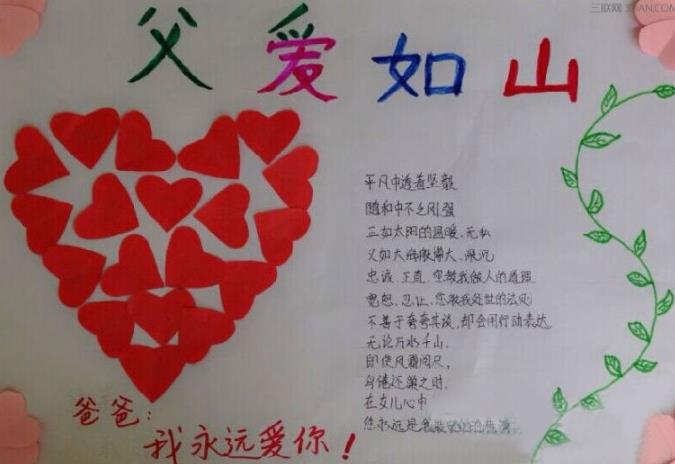 三联网 3LIAN.COM
父爱如山
平凡中透着坚毅
随和中不乏刚强
正如太阳的温暖、无私
又如大海般博大、深沉
忠诚、正直、您教我做人的道理
宽恕、忍让、您教我处世的法则
不善于夸夸其谈,却会用行动表达
无论万水千山,
即使风霜
身倦还巢之时,
在女儿心中
您永远是我
爸爸:
我永远爱你!